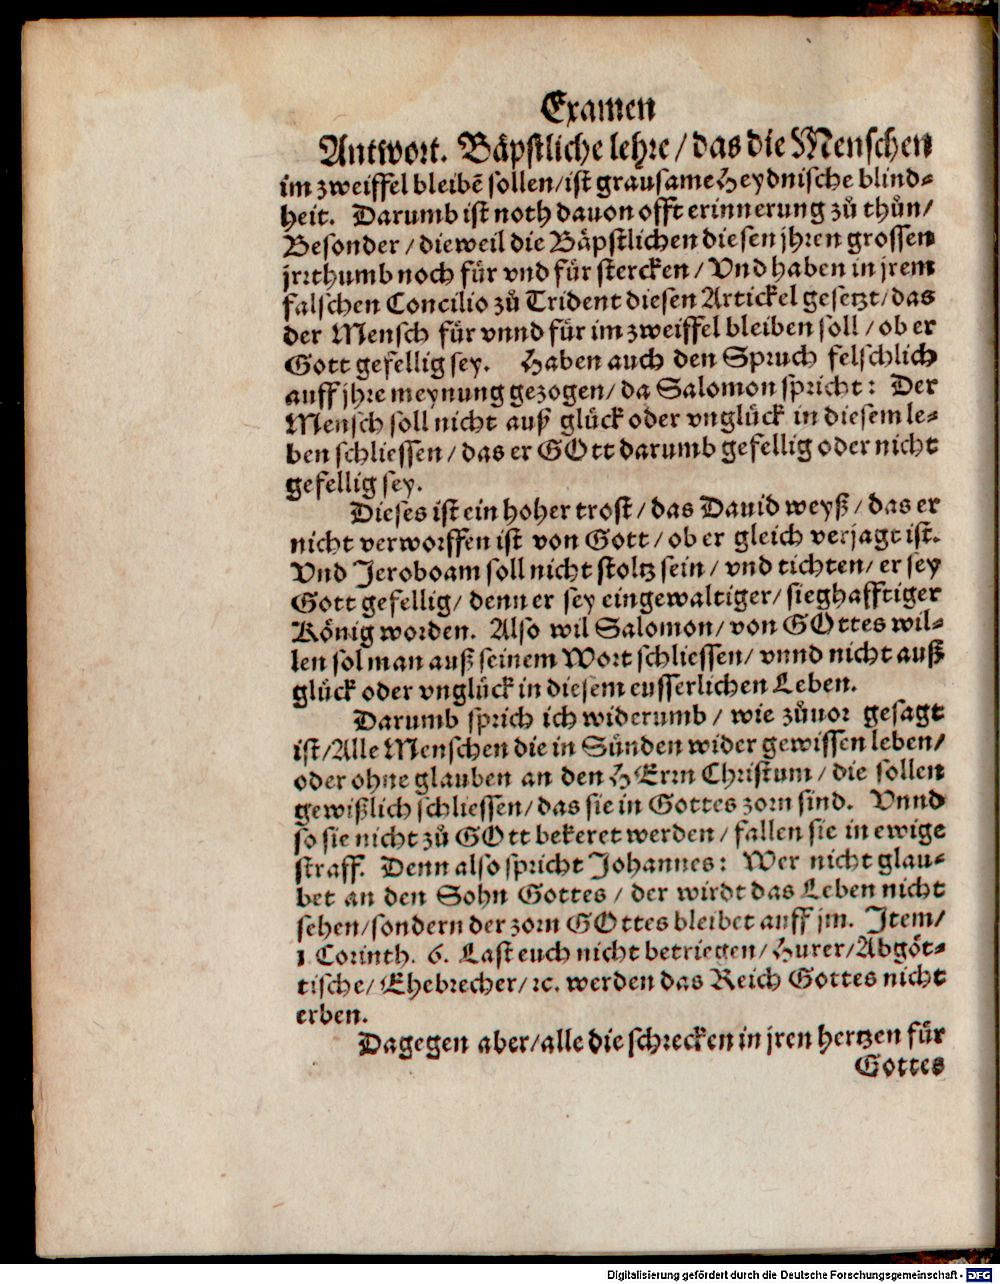 Examen
Antwort. Bäpstliche lehre / das die Menschen
im zweiffel bleibẽ sollen / ist grausame Heydnische blind⸗
heit. Darumb ist noth dauon offt erinnerung zů thůn /
Besonder / dieweil die Bäpstlichen diesen jhren grossen
jrrthumb noch für vnd für stercken / Vnd haben in jrem
falschen Concilio zů Trident diesen Artickel gesetzt / das
der Mensch für vnnd für im zweiffel bleiben soll / ob er
Gott gefellig sey. Haben auch den Spruch felschlich
auff jhre meynung gezogen / da Salomon spricht: Der
Mensch soll nicht auß glück oder vnglück in diesem le⸗
ben schliessen / das er GOtt darumb gefellig oder nicht
gefellig sey.
Dieses ist ein hoher trost / das Dauid weyß / das er
nicht verworffen ist von Gott / ob er gleich verjagt ist.
Vnd Jeroboam soll nicht stoltz sein / vnd tichten / er sey
Gott gefellig / denn er sey ein gewaltiger / sieghafftiger
König worden. Also wil Salomon / von GOttes wil⸗
len sol man auß seinem Wort schliessen / vnnd nicht auß
glück oder vnglück in diesem eusserlichen Leben.
Darumb sprich ich widerumb / wie zůuor gesagt
ist / Alle Menschen die in Sünden wider gewissen leben /
oder ohne glauben an den HErrn Christum / die sollen
gewißlich schliessen / das sie in Gottes zorn sind. Vnnd
so sie nicht zů GOtt bekeret werden / fallen sie in ewige
straff. Denn also spricht Johannes: Wer nicht glau⸗
bet an den Sohn Gottes / der wirdt das Leben nicht
sehen / sondern der zorn GOttes bleibet auff jm. Item /
1 Corinth. 6. Last euch nicht betriegen / Hurer / Abgöt⸗
tische / Ehebrecher / ꝛc. werden das Reich Gottes nicht
erben.
Dagegen aber / alle die schrecken in jren hertzen für
Gottes
Digitalisierung gefördert durch die Deutsche Forschungsgemeinschaft - DFG